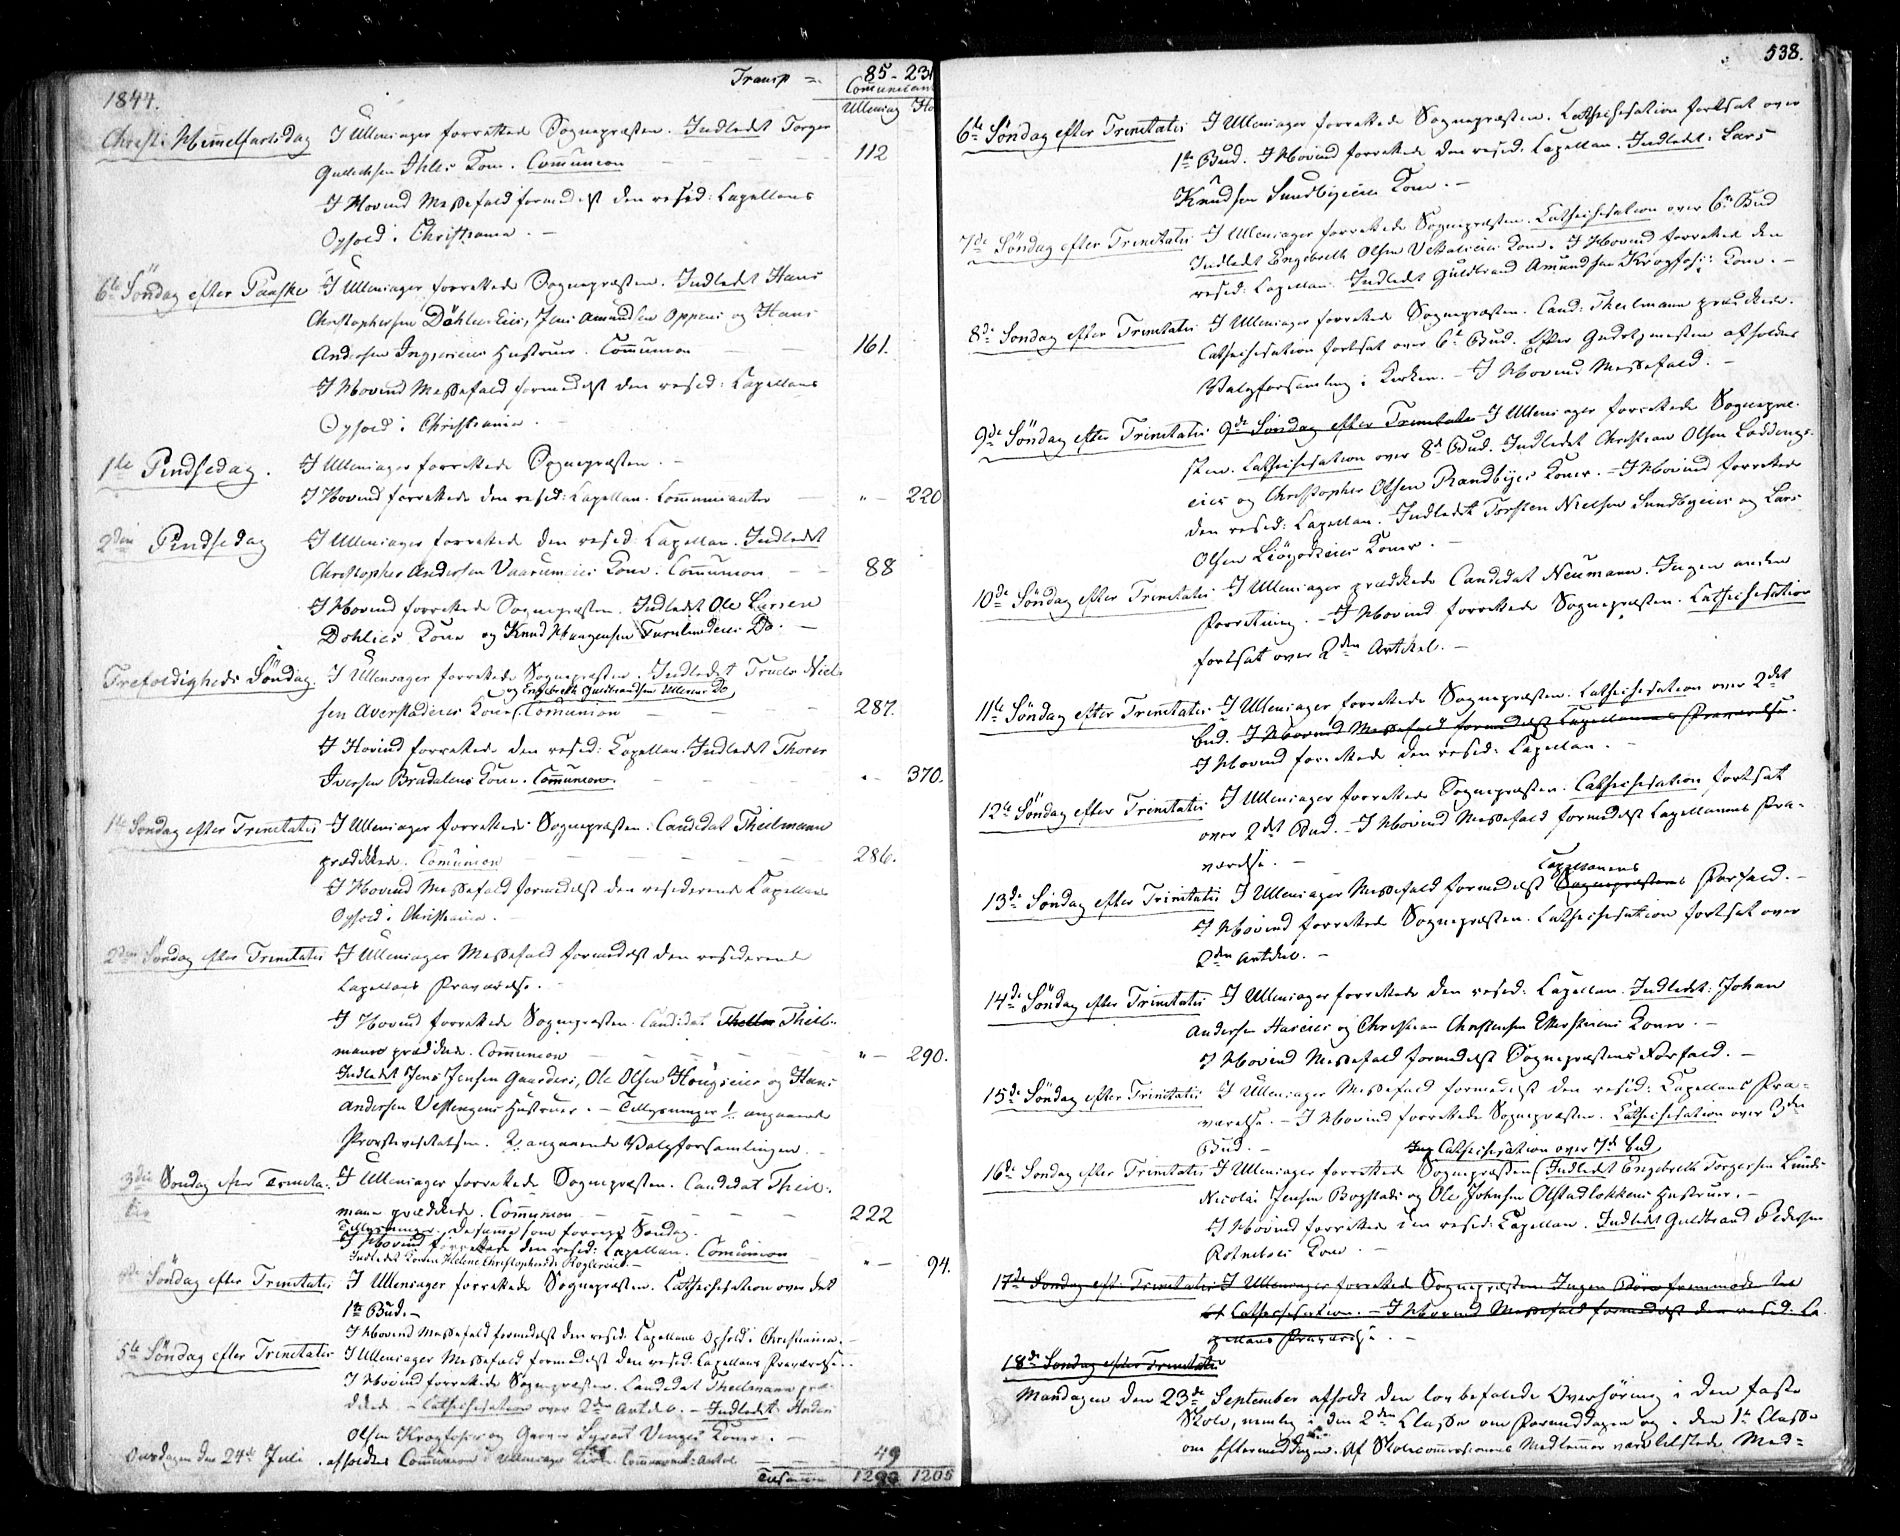 1844.
Transp = 85 - 231
Comunicant
Ullensag Ho
Christi Himmelfartsdag I Ullensager forrettede Sognepræsten. Indledt Torger
Gulliksen Ihles Kone. Comunion 112
I Hovind Messefald formedelst den resid: Capellans
Ophold i Christiania.
6te Söndag efter Paaske I Ullensager forrettede Sognepræsten. Indledt Hans
Christophersen Döhleneies, Jens Amundsen Oppens og Hans
Andersen Hustruer. Comunion 161.
I Hovind Messefald formedelst den resid: Capellans
Ophold i Christiania.
1ste Pindsedag. I Ullensager forrettede Sognepræsten.
I Hovind forrettede den resid: Capellan. Communicanter " - 220
2den Pindsedag I Ullensager forrettede den resid: Capellan. Indledt
Christopher Andersen Kone. Comunion 88
I Hovind forrettede Sognepræsten. Indledt Ole Larsen
Dohlies Kone og Knud Haagensen Do.
Trefoldigheds Söndag. I Ullensager forrettede Sognepræsten. Indledt Truls Niel-
og Engebreth Guldbrandsen Do
sen Averstadeies Kone. Comunion 287.
I Hovind forrettede den resid: Capellan. Indledt Thorer
Iversen Brudalens Kone. Comunion. " - 370.
1ste Söndag efter Trinitatis I Ullensager forrettede Sognepræsten. Candidat Theilmann
prædikede. Comunion 286.
I Hovind Messefald formedelst den residerende Capellans
Ophold i Christiania.
2den Söndag efter Trinitatis I Ullensager Messefald formedelst den residerende
Capellans Fraværelse.
I Hovind forrettede Sognepræsten. Candidat Theil-
mann prædikede. Comunion " - 290.
Indledt Jens Jensen Gaarders, Ole Olsen Hougseies og Hans
Andersen Vestengens Hustruer. - Tillysninger 1. angaaende
Provstevisitatsen. 2. angaaende Valgforsamlingen.
3die Söndag efter Trinita- I Ullensager forrettede Sognepræsten. Candidat Theil-
tis mann prædikede. Comunion 222
Tillysninger. De samme som forrige Söndag.
I Hovind forrettede den resid: Capellan. Comunion " - 94.
Indledt Helene Christophersd.
4de Söndag efter Trinitatis I Ullensager forrettede Sognepræsten. Cathechisation over det
1ste Bud. -
I Hovind Messefald formedelst den resid: Capellans Ophold i Christiania. -
5te Söndag efter Trinitatis I Ullensager Messefald formedelst den resid: Capellans Fraværelse. -
I Hovind forrettede Sognepræsten. Candidat Theilmann præ-
dikede. - Cathechisation over 2den Artikel. - Indledt Anders
Olsen Krogfoss og Venges Koner. -
Onsdagen den 24de Juli afholdtes Comunion i Ullensager Kirke. 49
Tilsammen 1205
538.
6te Söndag efter Trinitatis I Ullensager forrettede Sognepræsten. Cathechisation fortsat over
1ste Bud. I Hovind forrettede den resid. Capellan. Indledt: Lars
Knudsen Sundbyeies Kone. -
7de Söndag efter Trinitatis I Ullensager forrettede Sognepræsten. Cathechisation over 6te Bud
Indledt Engebreth Olsen Kone. I Hovind forrettede den
resid: Capellan. Indledt Guldbrand Amundsen Krogfoss: Kone. -
8de Söndag efter Trinitatis I Ullensager forrettede Sognepræsten. Cand: Theilmann prædikede.
Cathechisation fortsat over 6te Bud. Efter Gudstjenesten afholdtes
Valgforsamling i Kirken. - I Hovind Messefald. -
9de Söndag efter Trinitatis 9de Söndag efter Trinitatis I Ullensager forrettede Sognepræ-
sten. Cathechisation over 8de Bud. Indledt Christian Olsen
eies og Christopher Olsen Randbyes Koner. - I Hovind forrettede
den resid: Capellan. Indledt Torsten Nielsen Sundbyeies og Lars
Olsen Koner. -
10de Söndag efter Trinitatis I Ullensager prædikede Candidat Neumann. Ingen anden
Forretning. - I Hovind forrettede Sognepræsten. Cathechisation
fortsat over 2den Artikel. -
11te Söndag efter Trinitatis I Ullensager forrettede Sognepræsten. Cathechisation over 2det
Bud. I Hovind Messefald formedelst Capellanens Fraværelse.
I Hovind forrettede den resid: Capellan. -
12te Söndag efter Trinitatis I Ullensager forrettede Sognepræsten. Cathechisation fortsat
over 2det Bud. - I Hovind Messefald formedelst Capellanens Fra-
værelse. -
Capellanens
13de Söndag efter Trinitatis I Ullensager Messefald formedelst Sognepræstens Forfald. -
I Hovind forrettede Sognepræsten. Cathechisation fortsat over
2den Artikel. -
14de Söndag efter Trinitatis I Ullensager forrettede den resid: Capellan. Indledt: Johan
Andersen og Christian Christensen Koner. -
I Hovind Messefald formedelst Sognepræstens Forfald. -
15de Söndag efter Trinitatis I Ullensager Messefald formedelst den resid: Capellans Fra-
værelse. - I Hovind forrettede Sognepræsten. Cathechisation over 3die
Bud. -
Cathechisation over 7de Bud
16de Söndag efter Trinitatis I Ullensager forrettede Sognepræsten. Indledt Engebreth Torgersen
Nicolai Jensen Bogstads og Ole Johnsen Olstadlökkens Hustruer. -
I Hovind forrettede den resid: Capellan. Indledt Guldbrand Pedersen
Kone. -
17de Söndag efter Trinitatis I Ullensager forrettede Sognepræsten Ingen Börn fremmödte
Cathechisation. - I Hovind Messefald formedelst den resid: Ca-
pellans Fraværelse. -
18de Söndag efter Trinitatis
Mandagen den 23de September afholdt den lovbefalede Overhöring i den faste
Skole, nemlig i den 2den Classe om Formiddagen og i den 1ste Classe
om Eftermiddagen. Af Skolecommissionens Medlemmer vare tilstede Med-